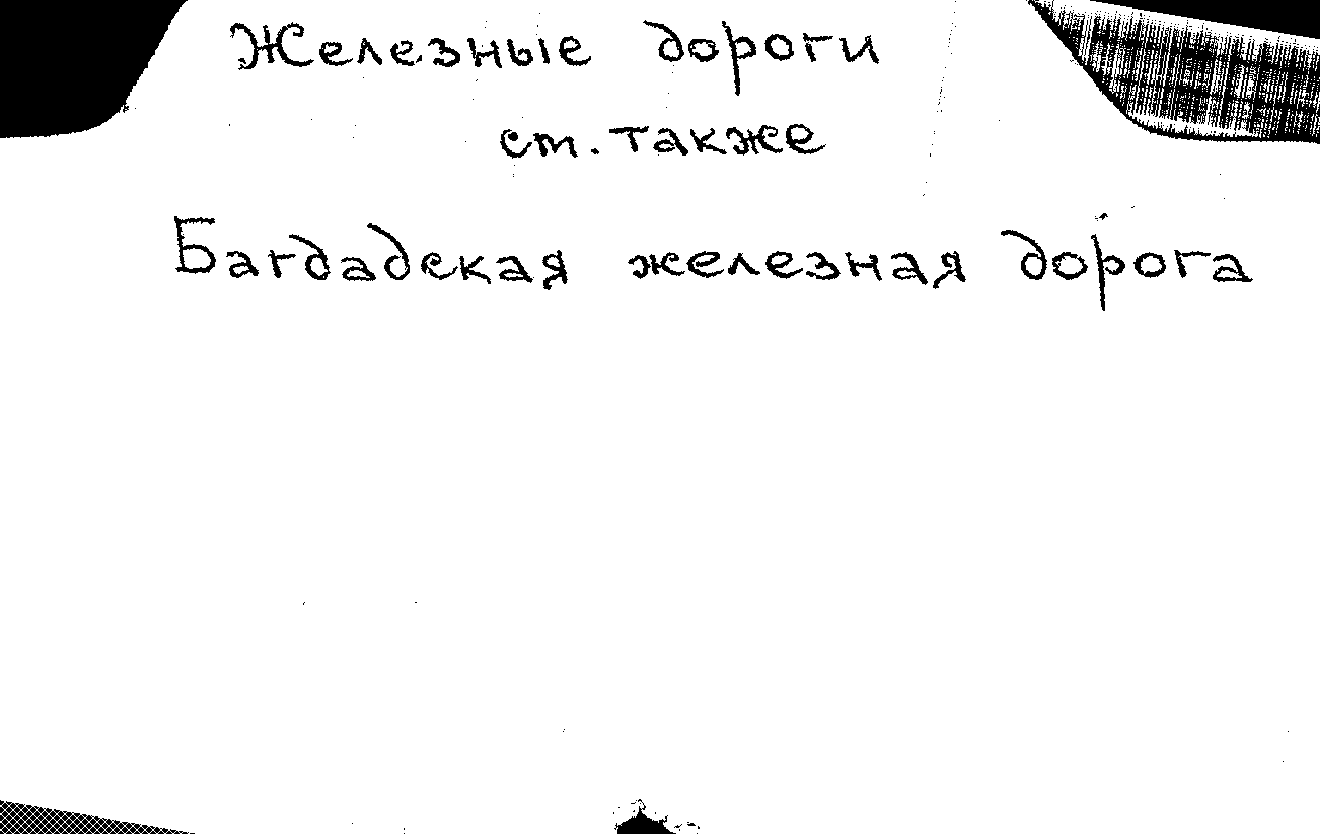 Железные дороги
см. также
Багдадская железная дорога